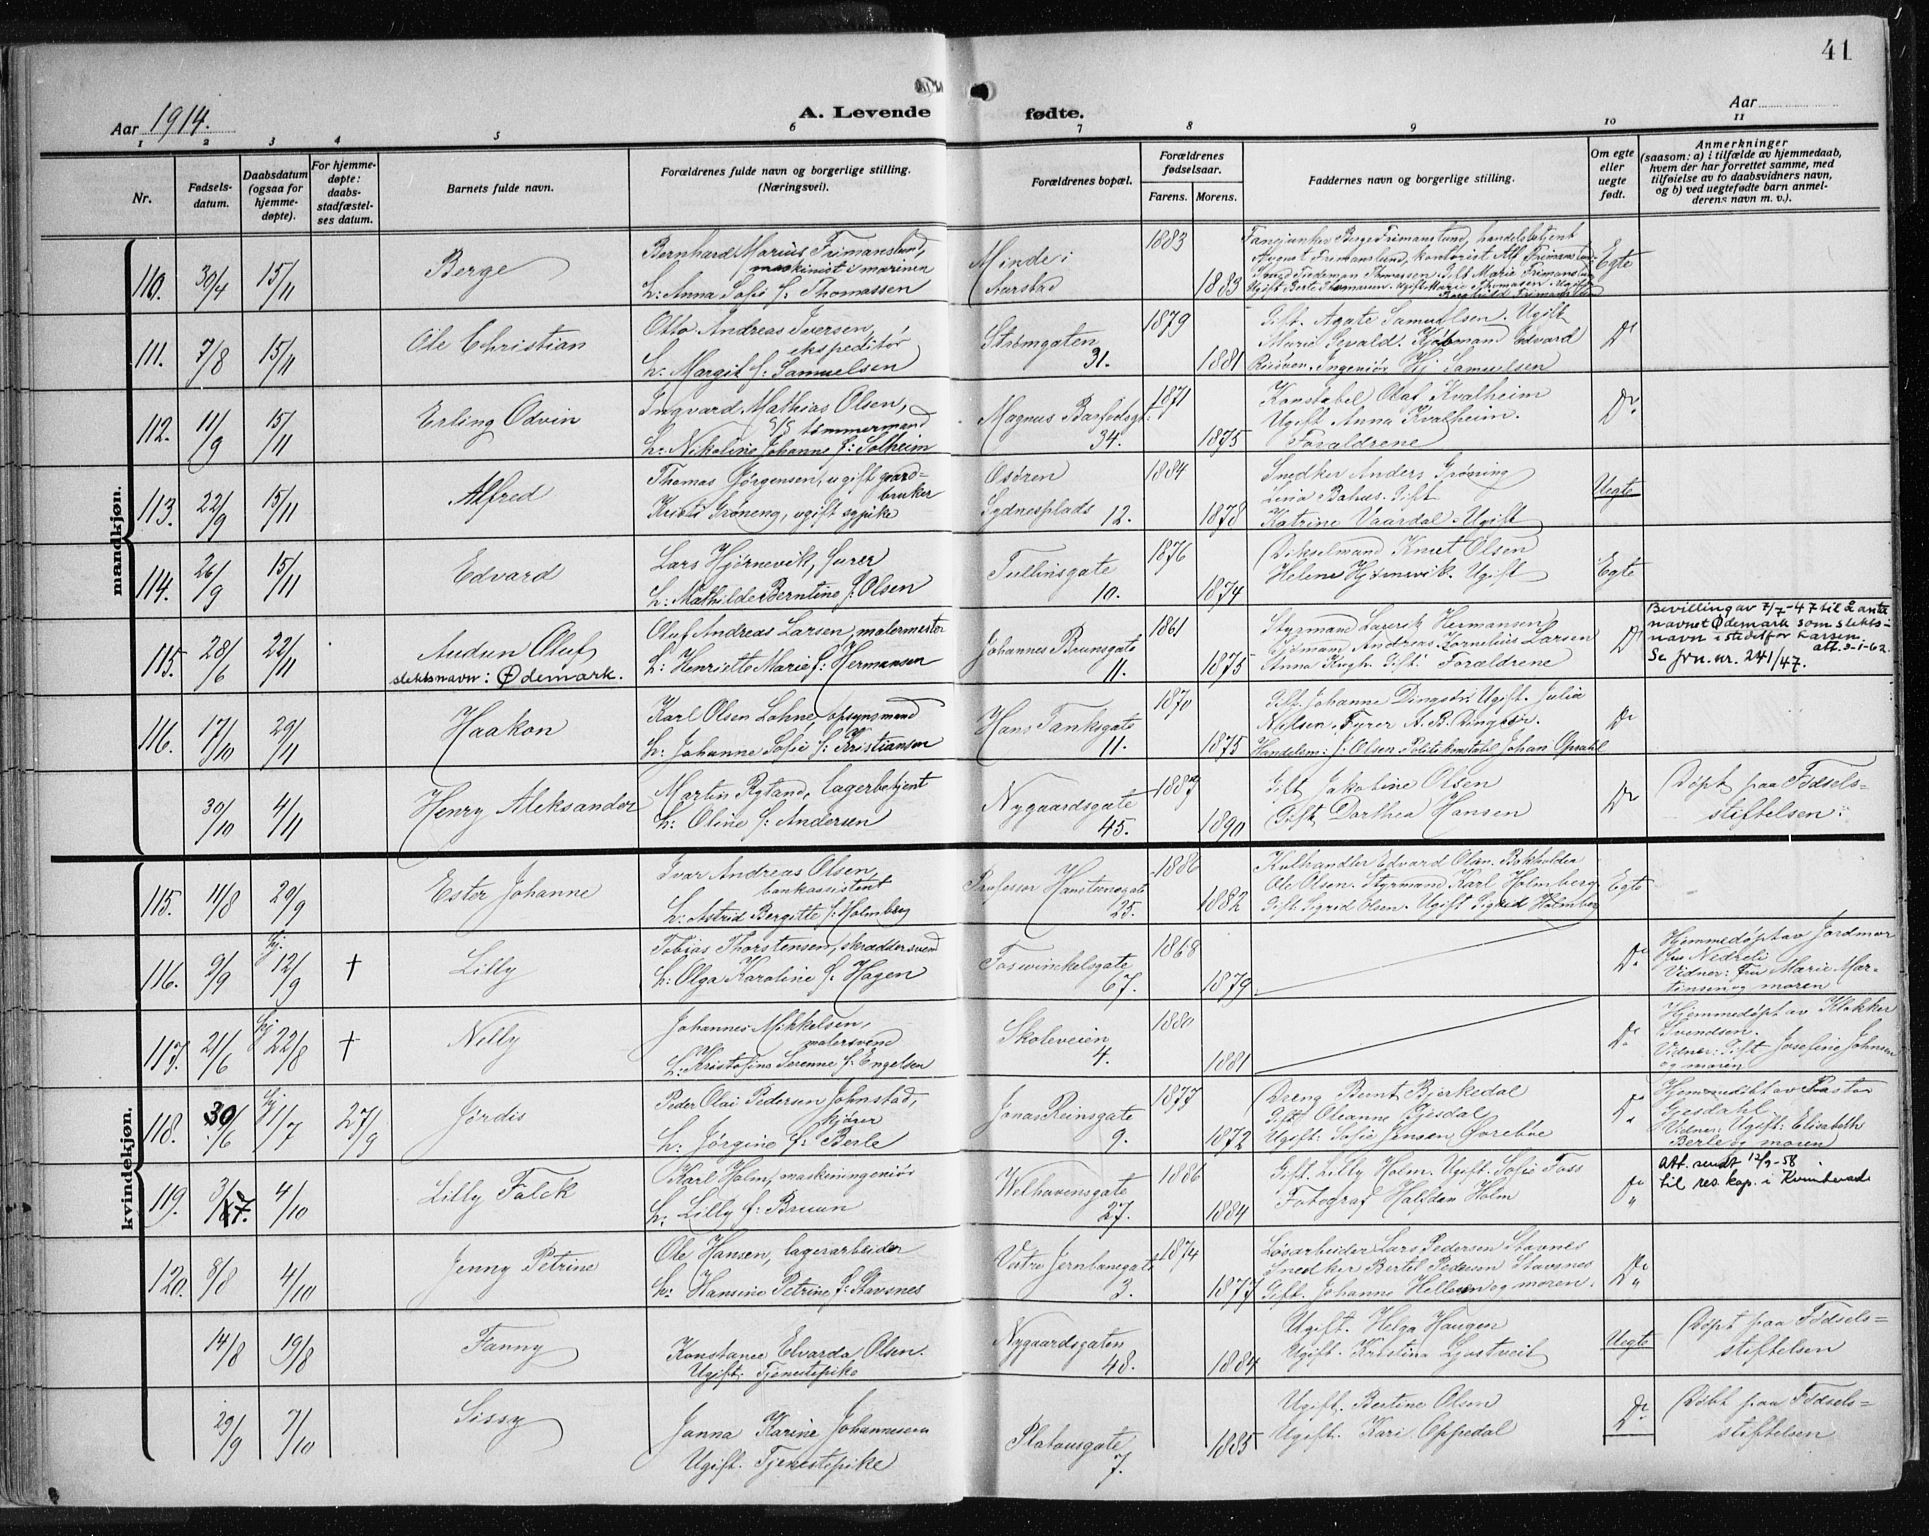 41
Aar 1914.
A. Levende fødte.
Aar
1 2 3 4 5 6 7 8 9 10 11
Nr.
Fødsels-
datum.
Daabsdatum
(ogsaa for
hjemme-
døpte).
For hjemme-
døpte:
daabs-
stadfæstel-
ses datum.
Barnets fulde navn.
Forældrenes fulde navn og borgerlige stilling.
(Næringsvei).
Forældrenes bopæl.
Forældrenes
fødselsaar.
Farens. Morens.
Faddernes navn og borgerlige stilling.
Om egte
eller
uegte
født.
Anmerkninger
(saasom: a) i tilfælde av hjemmedaab,
hvem der har forrettet samme, med
tilføielse av to daabsvidners navn,
og b) ved uegtefødte barn anmel-
derens navn m. v.).
mandkjøn.
110. 30/4 15/11 Berge
Bernhard Marius Frimanslund,
maskinist i marinen
h: Anna Sofie f: Thomassen
Minde i
Aarstad
1883 1883
August Frimanslund, kontorist Alf Frimanslund
Egte
111. 7/8 15/11 Ole Christian
Otto Andreas Iversen,
ekspeditør
h: Margit f: Samuelsen
Strømgaten
31.
1879 1881
Gift. Agate Samuelsen. Ugift
Marie Sevald. Kjøbmand Edvard
Ingeniør Hj. Samuelsen
Do
112. 11/9 15/11 Erling Odvin
Ingvard Mathias Olsen,
S/S tømmermand
h: Nikoline Johanne f: Solheim
Magnus Barfodsgt.
34.
1871 1875
Konstabel Olaf Kvalheim
Ugift Anna Kvalheim.
Forældrene
Do
113. 22/9 15/11 Alfred
Thomas Jørgensen, ugift gaard-
bruker
Kristi Grøneng, ugift sypike
Osøren
Sydnesplads 12.
1884 1878
Snedker Anders Grøning
Lina Bahus. Gift
Katrine Vaardal. Ugift
Uegte
114. 26/9 15/11 Edvard
Lars Hjørnevik, furer
h: Mathilde Berntine f: Olsen
Tullinsgate
10.
1876 1874
Dikselmand Knut Olsen
Helene Hjørnevik. Ugift
Egte
115. 28/6 22/11 Audun Oluf
slektsnavn: Ødemark.
Oluf Andreas Larsen, malermester
h: Henriette Marie f: Hermansen
Johannes Brunsgate
11.
1861 1875
Styrmand Laurik Hermansen
Sjømand Andreas Kornelius Larsen
Anna Krogh. Gift. Forældrene
Do
Bevilling av 7/7-47 til å anta
navnet Ødemark som slekts-
navn i stedet for Larsen.
Se jrn. nr. 241/47. att. 3-1-62.
116. 17/10 29/11 Haakon
Karl Olsen Lohne, opsynsmand
h: Johanne Sofie f: Kristiansen
Hans Tanksgate
11.
1870 1875
Gift Johanne Dingsør. Ugift. Julie
Nielsen. Fyrer A. B. Dingsør.
Handelsm: J. Olsen. Politikonstabel Johan Opsahl
Do
30/10 4/11 Henry Aleksander
Martin Rytand, lagerbetjent
h: Oline f: Andersen
Nygaardsgate
45.
1887 1890
Gift Jakobine Olsen
Gift Dorthea Hansen
Do
Døpt paa Fødsels=
stiftelsen.
kvindekjøn.
115. 11/8 20/9 Ester Johanne
Ivar Andreas Olsen,
bankassistent
h: Astrid Bergitte f: Holmberg
Professor Hansteensgate
25.
1886 1882
Kulhandler Edvard Olsen. Bokholder
Ole Olsen. Styrmand Karl Holmberg
Gift. Sigrid Olsen. Ugift Sigrid Holmberg
Egte
116. 9/9 Hj. 12/9 † Lilly
Tobias Thorstensen, skræddersvend
h: Olga Karoline f: Hagen
Foswinkelsgate
67.
1868 1879
Do
Hjemmedøpt av Jordmor
fru Nedreli
Vidner: Fru Marie Mar-
tinsen og moren
117. 21/6 Hj 22/8 † Nelly
Johannes Mikkelsen,
malersvend
h: Kristofina Serenne f: Engelsen
Skoleveien
4.
1880 1881
Do
Hjemmedøpt av Klokker
Svendsen.
Vidner: Gift Josefine Johnsen
og moren
118. 30/6 Hj 11/7 27/9 Jørdis
Peder Olai Pedersen Johnstad,
kjører
h: Jørgine f: Berle
Jonas Reinsgate
9.
1877 1872
Dreng Bernt Bjerkedal
Gift Oleanne Gjesdal
Ugift: Sofie Jensen Ørebøe
Do
Hjemmedøbt av Pastor
Gjesdahl
Vidner: Ugift: Elisabeth
Berle og moren
119. 3/8 4/10 Lilly Falck
Karl Holm, maskiningeniør
h: Lilly f: Bruun
Welhavensgate
27.
1886 1884
Gift. Lilly Holm. Ugift. Sofie Foss
Fotograf Halfdan Holm
Do
Att. sendt 12/9-58
til res. kap. i Kvinherad
120. 8/8 4/10 Jenny Petrine
Ole Hansen, lagerarbeider
h: Hansine Petrine f: Stavsnes
Vestre Jernbanegate
3.
1874 1877
Løsarbeider Lars Pedersen Stavnes
Snedker Bertel Pedersen Stavsnes
Gift. Johanne Hellesen og moren.
Do
14/8 19/8 Fanny
Konstance Elvarda Olsen.
Ugift. Tjenestepike
Nygaardsgaten
48.
1884
Ugift. Helga Haugen
Ugift. Kristina Ljostveit
Uegte
Døpt paa Fødsels=
stiftelsen
29/9 7/10 Sissy
Janna Karine Johannesen
Ugift. Tjenestepike
Platousgate
7.
1885
Ugift. Bertine Olsen
Ugift. Kari Oppedal
Do
Døbt paa Fødsels=
stiftelsen